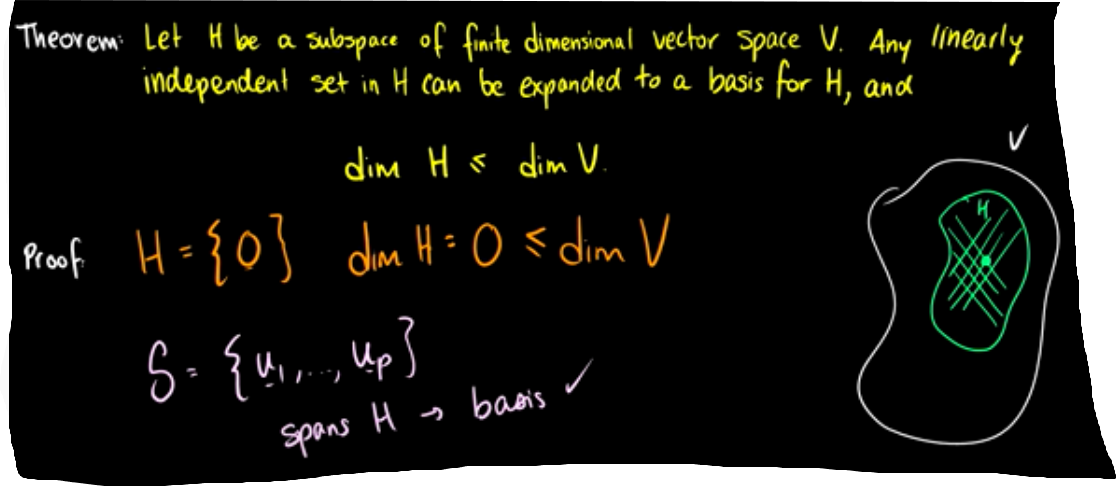 Theorem: Let H be a subspace of finite dimensional vector space V. Any linearly
independent set in H can be expanded to a basis for H, and
dim H ≤ dim V.
V
H
Proof: H = {0} dim H = 0 ≤ dim V
S = {u₁,..., uₚ}
spans H → basis ✓